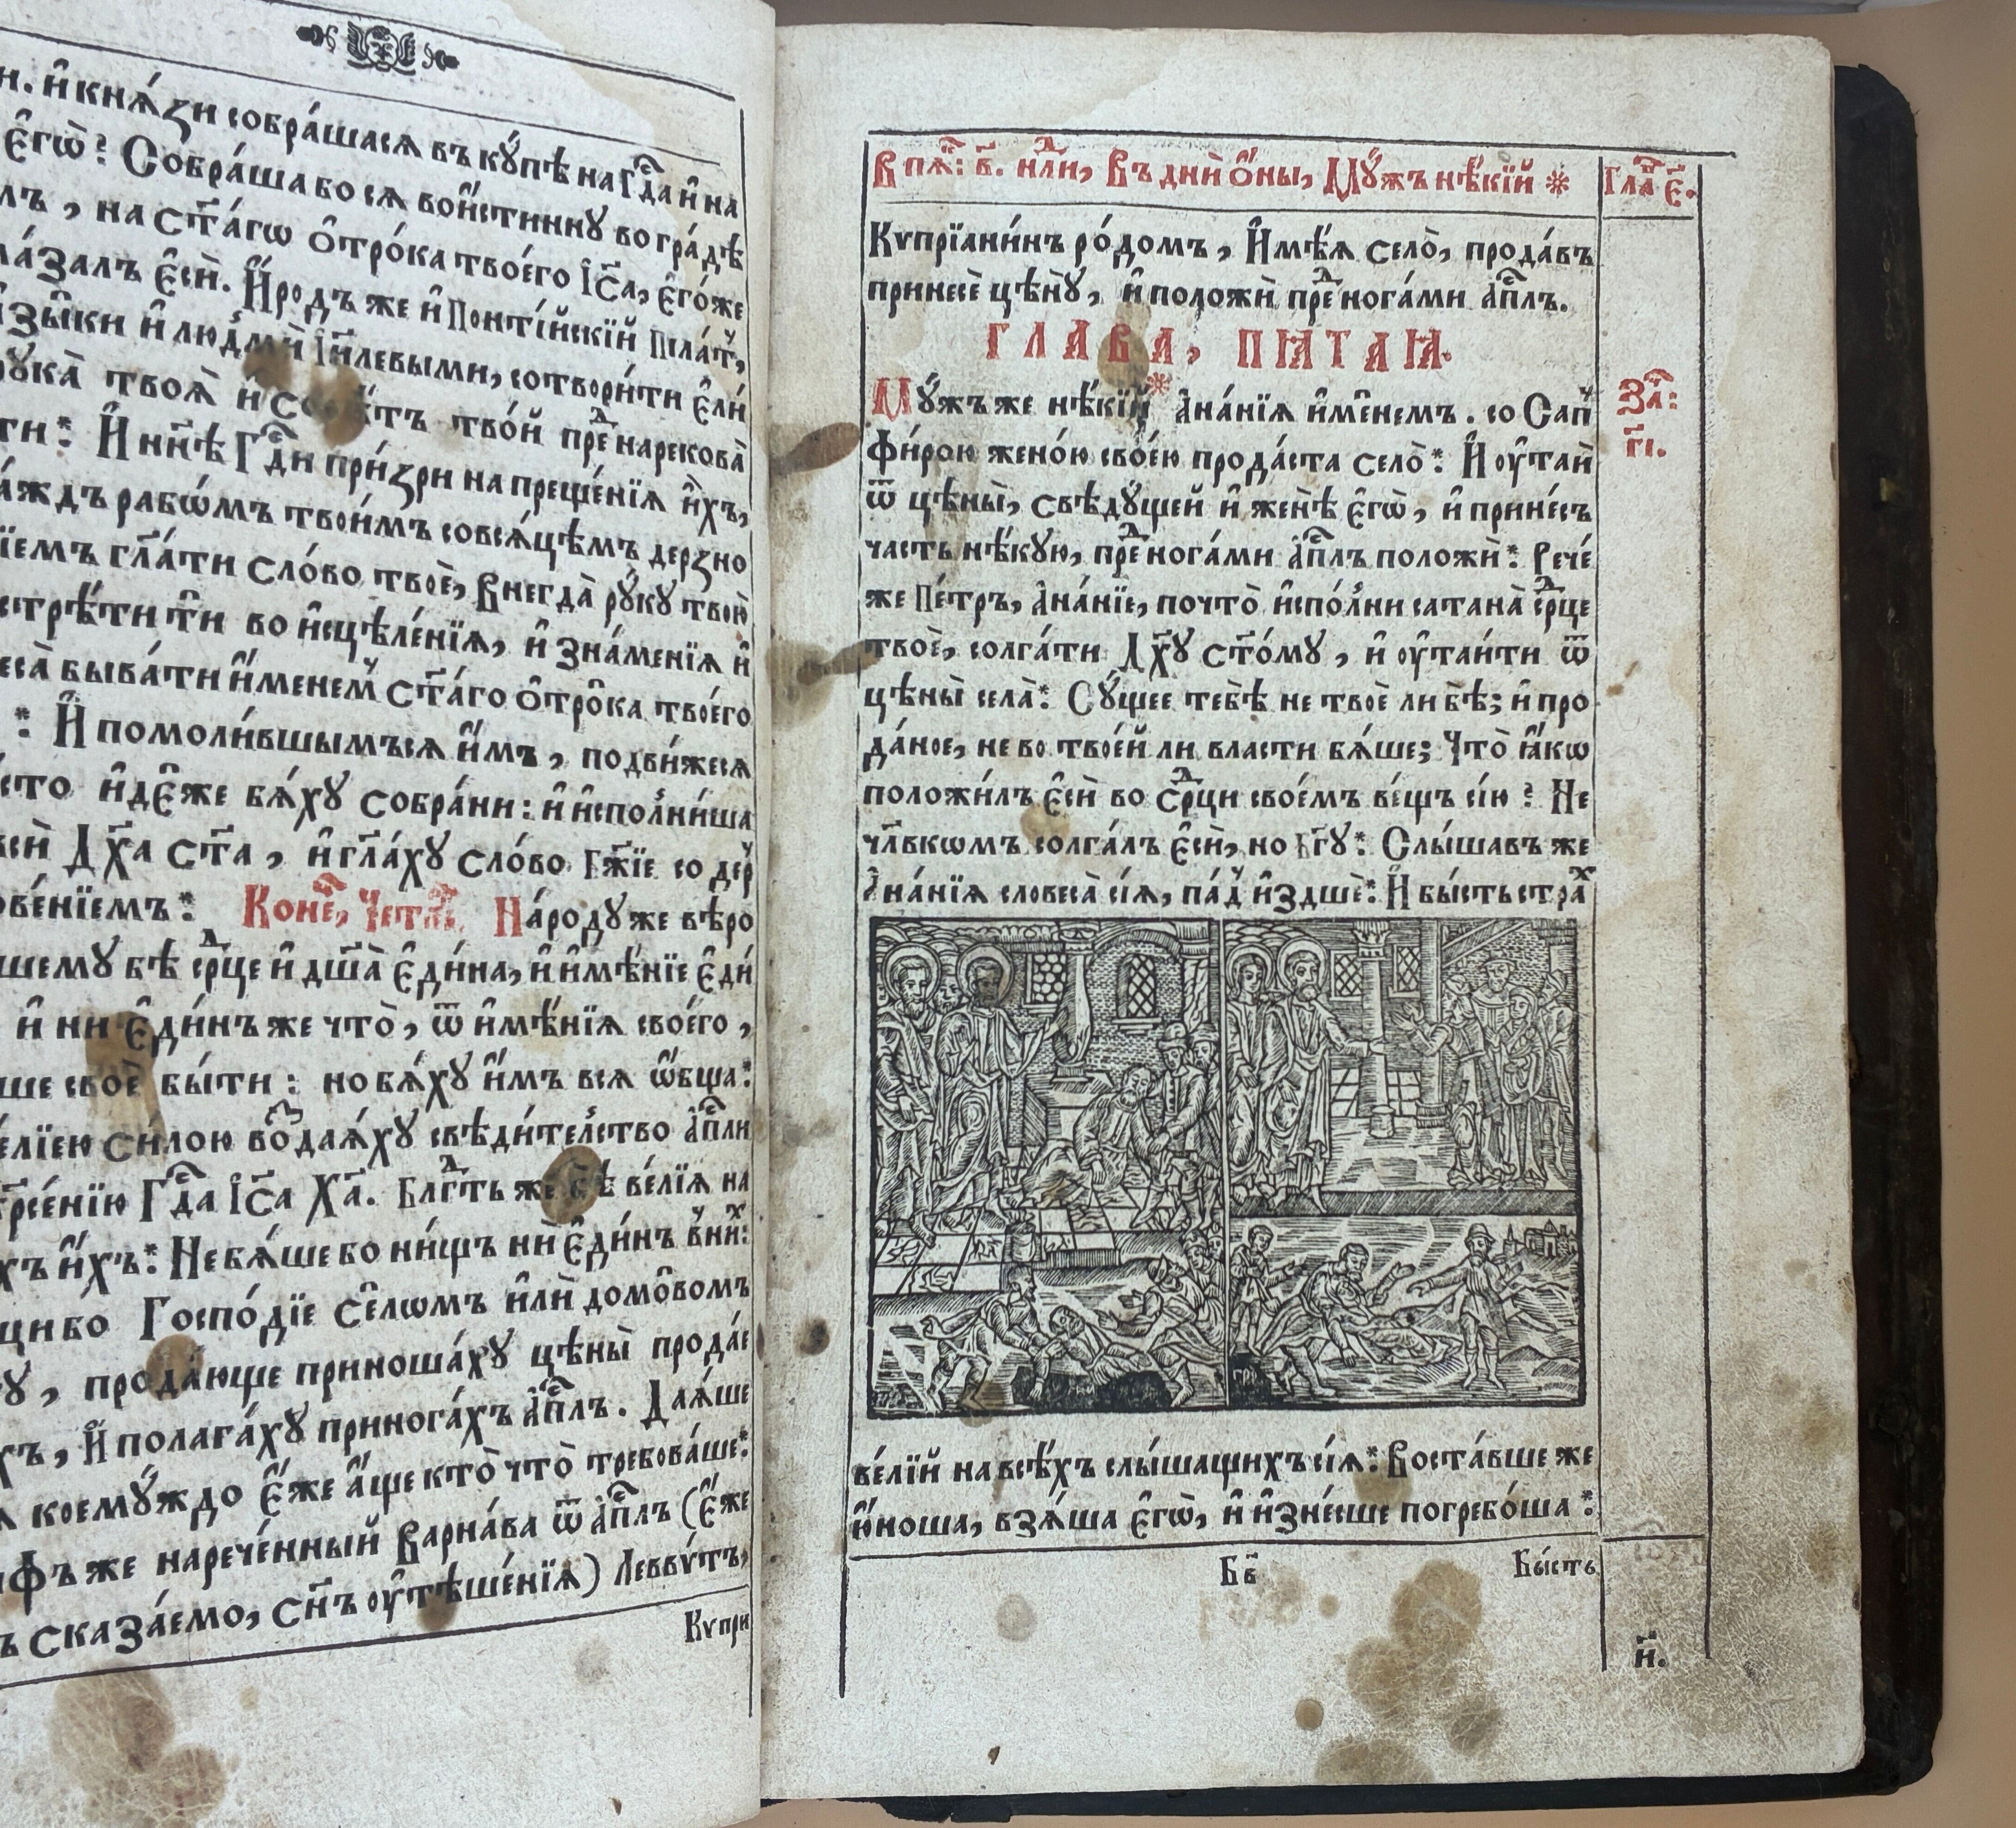 и кнѧ́ꙁи собра́шасѧ въ кꙋ́пѣ на Гдⷭ҇а и҆ на
є҆гѡ̀: Собра́ша бо сѧ вои́стиннꙋ во гра́дѣ
на ст҃а́гѡ ѻ҆́трока твоегѡ І҆с҃а, є҆го́же
є҆сѝ. И҆́родъ же и҆ Понті́йскїй Пїла́тъ,
и҆ лю́дмѝ І҆и҃левыми, сотвори́ти є҆ли́
рꙋка̀ твоѧ̀ и҆ твоѝ пре́дⷣнарекова̀
И҆ нн҃ѣ Гдⷭ҇и при́ꙁри на преще́нїѧ и҆́хъ,
рабѡ́мъ твои́мъ со всѧ́цѣмъ дерꙁно
гл҃а́ти сло́во твоѐ, Внегда̀ рꙋ́кꙋ твою̀
во и҆сцѣле́нїѧ, и҆ зна́менїѧ и҆
быва́ти и҆́менемъ ст҃а́го ѻ҆́трока твоего
: И҆ помоли́вшымъсѧ и҆́мъ, подви́жесѧ
и҆дѣ́же бѧ́хꙋ со́бра́ни: и҆ и҆спо́лни́ша
Дх҃а ст҃а, и҆ гл҃а́хꙋ сло́во Бж҃їе со дер
Коне́ⷰ, Четв. На́родꙋ же вѣро
бѣ срⷣце и҆ дш҃а̀ є҆ди́на, и҆ и҆мѣ́нїе є҆ди́
и҆ ни є҆ди́нъ же что̀, ѿ и҆мѣ́нїѧ своего,
своѐ бы́ти: но бѧ́хꙋ и҆́мъ всѧ ѡ҆́бща:
си́лою во́здаѧ́хꙋ свѣди́телство а҆пⷭ҇ли
Гдⷭ҇а І҆с҃а Хⷭ҇а. Блгⷣть же бѣ ве́лїѧ на
и҆́хъ: Не бѧ́ше бо ни́щъ ни є҆ди́нъ в ни́хъ:
бо Госпо́дїе се́лѡмъ и҆лѝ домо́вомъ
прода́юще приноша́хꙋ цѣны̀ прода́е
и҆ полага́хꙋ при нога́хъ а҆пⷭ҇лъ. Даѧ́ше
коемꙋ́ждо є҆́же а҆́ще кто̀ что̀ требова́ше:
же нарече́нный Варна́ва ѿ а҆пⷭ҇лъ (є҆́же
сказа́емо, сн҃ъ ᲂу҆тѣше́нїѧ) Леввѵ́тъ,
Кѵпри
В пѧⷦ҇: в҃. нⷣли, Въ дни̑ ѻ҆́ны, Мꙋ́жъ нѣ́кїй
Гла⷇ е҃.
Кѵпрїани́нъ ро́домъ, И҆мѣ́ѧ село̀, прода́въ
принесѐ цѣ́нꙋ, и҆ положѝ преⷣ нога́ми а҆пⷭ҇лъ.
ГЛАВА, ПѦТАѦ.
Мꙋ́жъ же нѣ́кїй А҆на́нїѧ и҆́менемъ. со Сап
фи́рою жено́ю свое́ю прода́ста село̀: И҆ ᲂу҆таѝ
ѿ цѣны̀, свѣдꙋ́щей и҆ женѣ̀ є҆гѡ̀, и҆ прине́съ
часть нѣ́кꙋю, преⷣ нога́ми а҆пⷭ҇лъ положѝ: Рече́
же Пе́тръ, А҆на́нїе, почто̀ и҆спо́лни сатана̀ срⷣце
твоѐ, солга́ти Дх҃ꙋ ст҃о́мꙋ, и҆ ᲂу҆таи́ти ѿ
цѣны̀ села̀: Сꙋ́щее тебѣ̀ не твоѐ ли бѣ; и҆ про
да́ное, не во твое́й ли власти бѧ́ше; Что̀ ꙗ҆́кѡ
положи́лъ є҆сѝ во срⷣци свое́мъ ве́щъ сїю ? Не
чл҃вкѡмъ солга́лъ є҆сѝ, но Бг҃ꙋ: Слы́шавъ же
А҆на́нїѧ словеса̀ сїѧ̀, па́дъ и҆́здшѐ: И҆ бы́сть страⷯ
ве́лїй на всѣ́хъ слы́шащихъ сїѧ̀: Воста́вше же
ю҆́ноша, взѧ́ша є҆гѡ̀, и҆ и҆зне́сше погребо́ша:
Заⷱ҇:
г҃і.
Бв҃
Бы́сть
и҃.